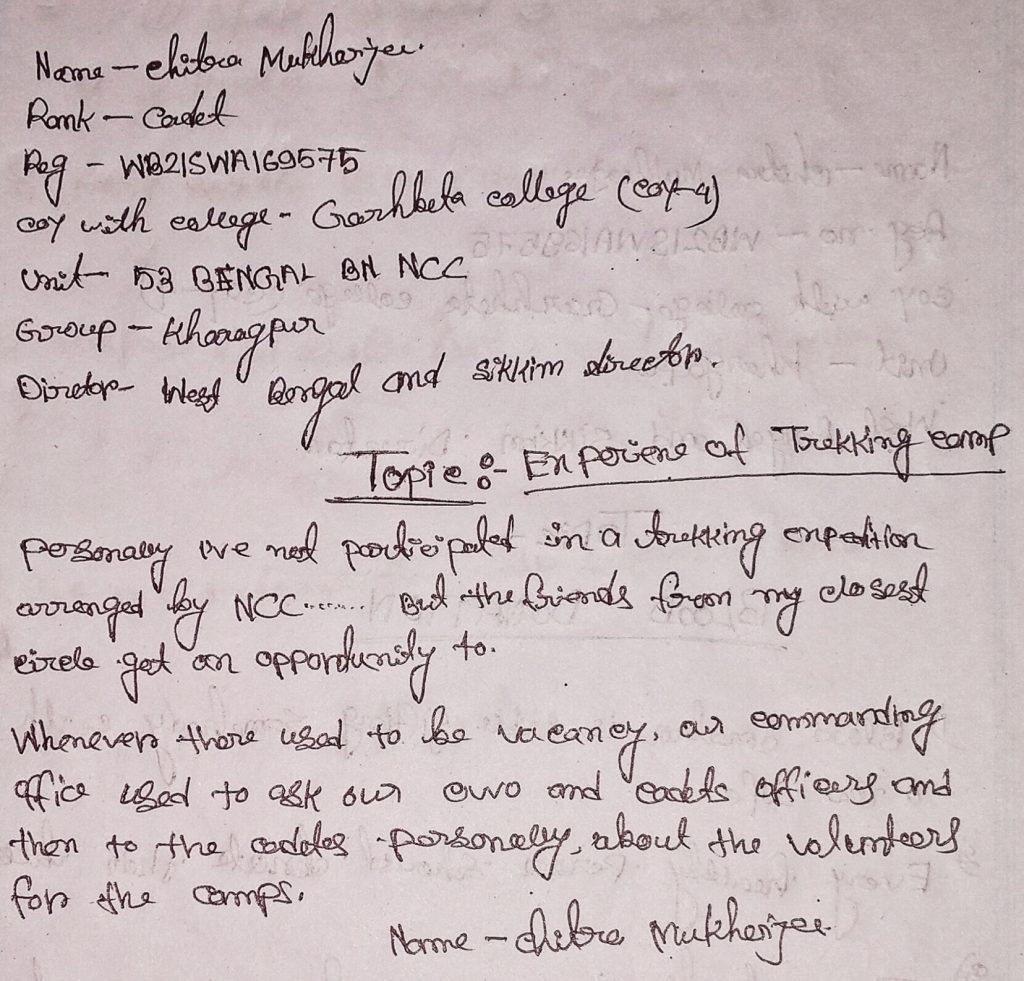 Name - chitra Mukherjee.
Rank - Cadet
Reg - WB21SWA169575
coy with college - Garhbeta college (coy-4)
Unit - 53 BENGAL BN NCC
Group - Kharagpur
Diretor - West Bengal and Sikkim director.
Topic :- Experiene of Trekking camp
personaly I've not participated in a trekking expedition
arranged by NCC....... But the friends from my closest
circle got an opportunity to.
Whenever there used to be vacancy, our commanding
office used to ask our and cadets officers and
then to the caddes personally, about the volunteers
for the camps.
Name - chitra Mukherjee.